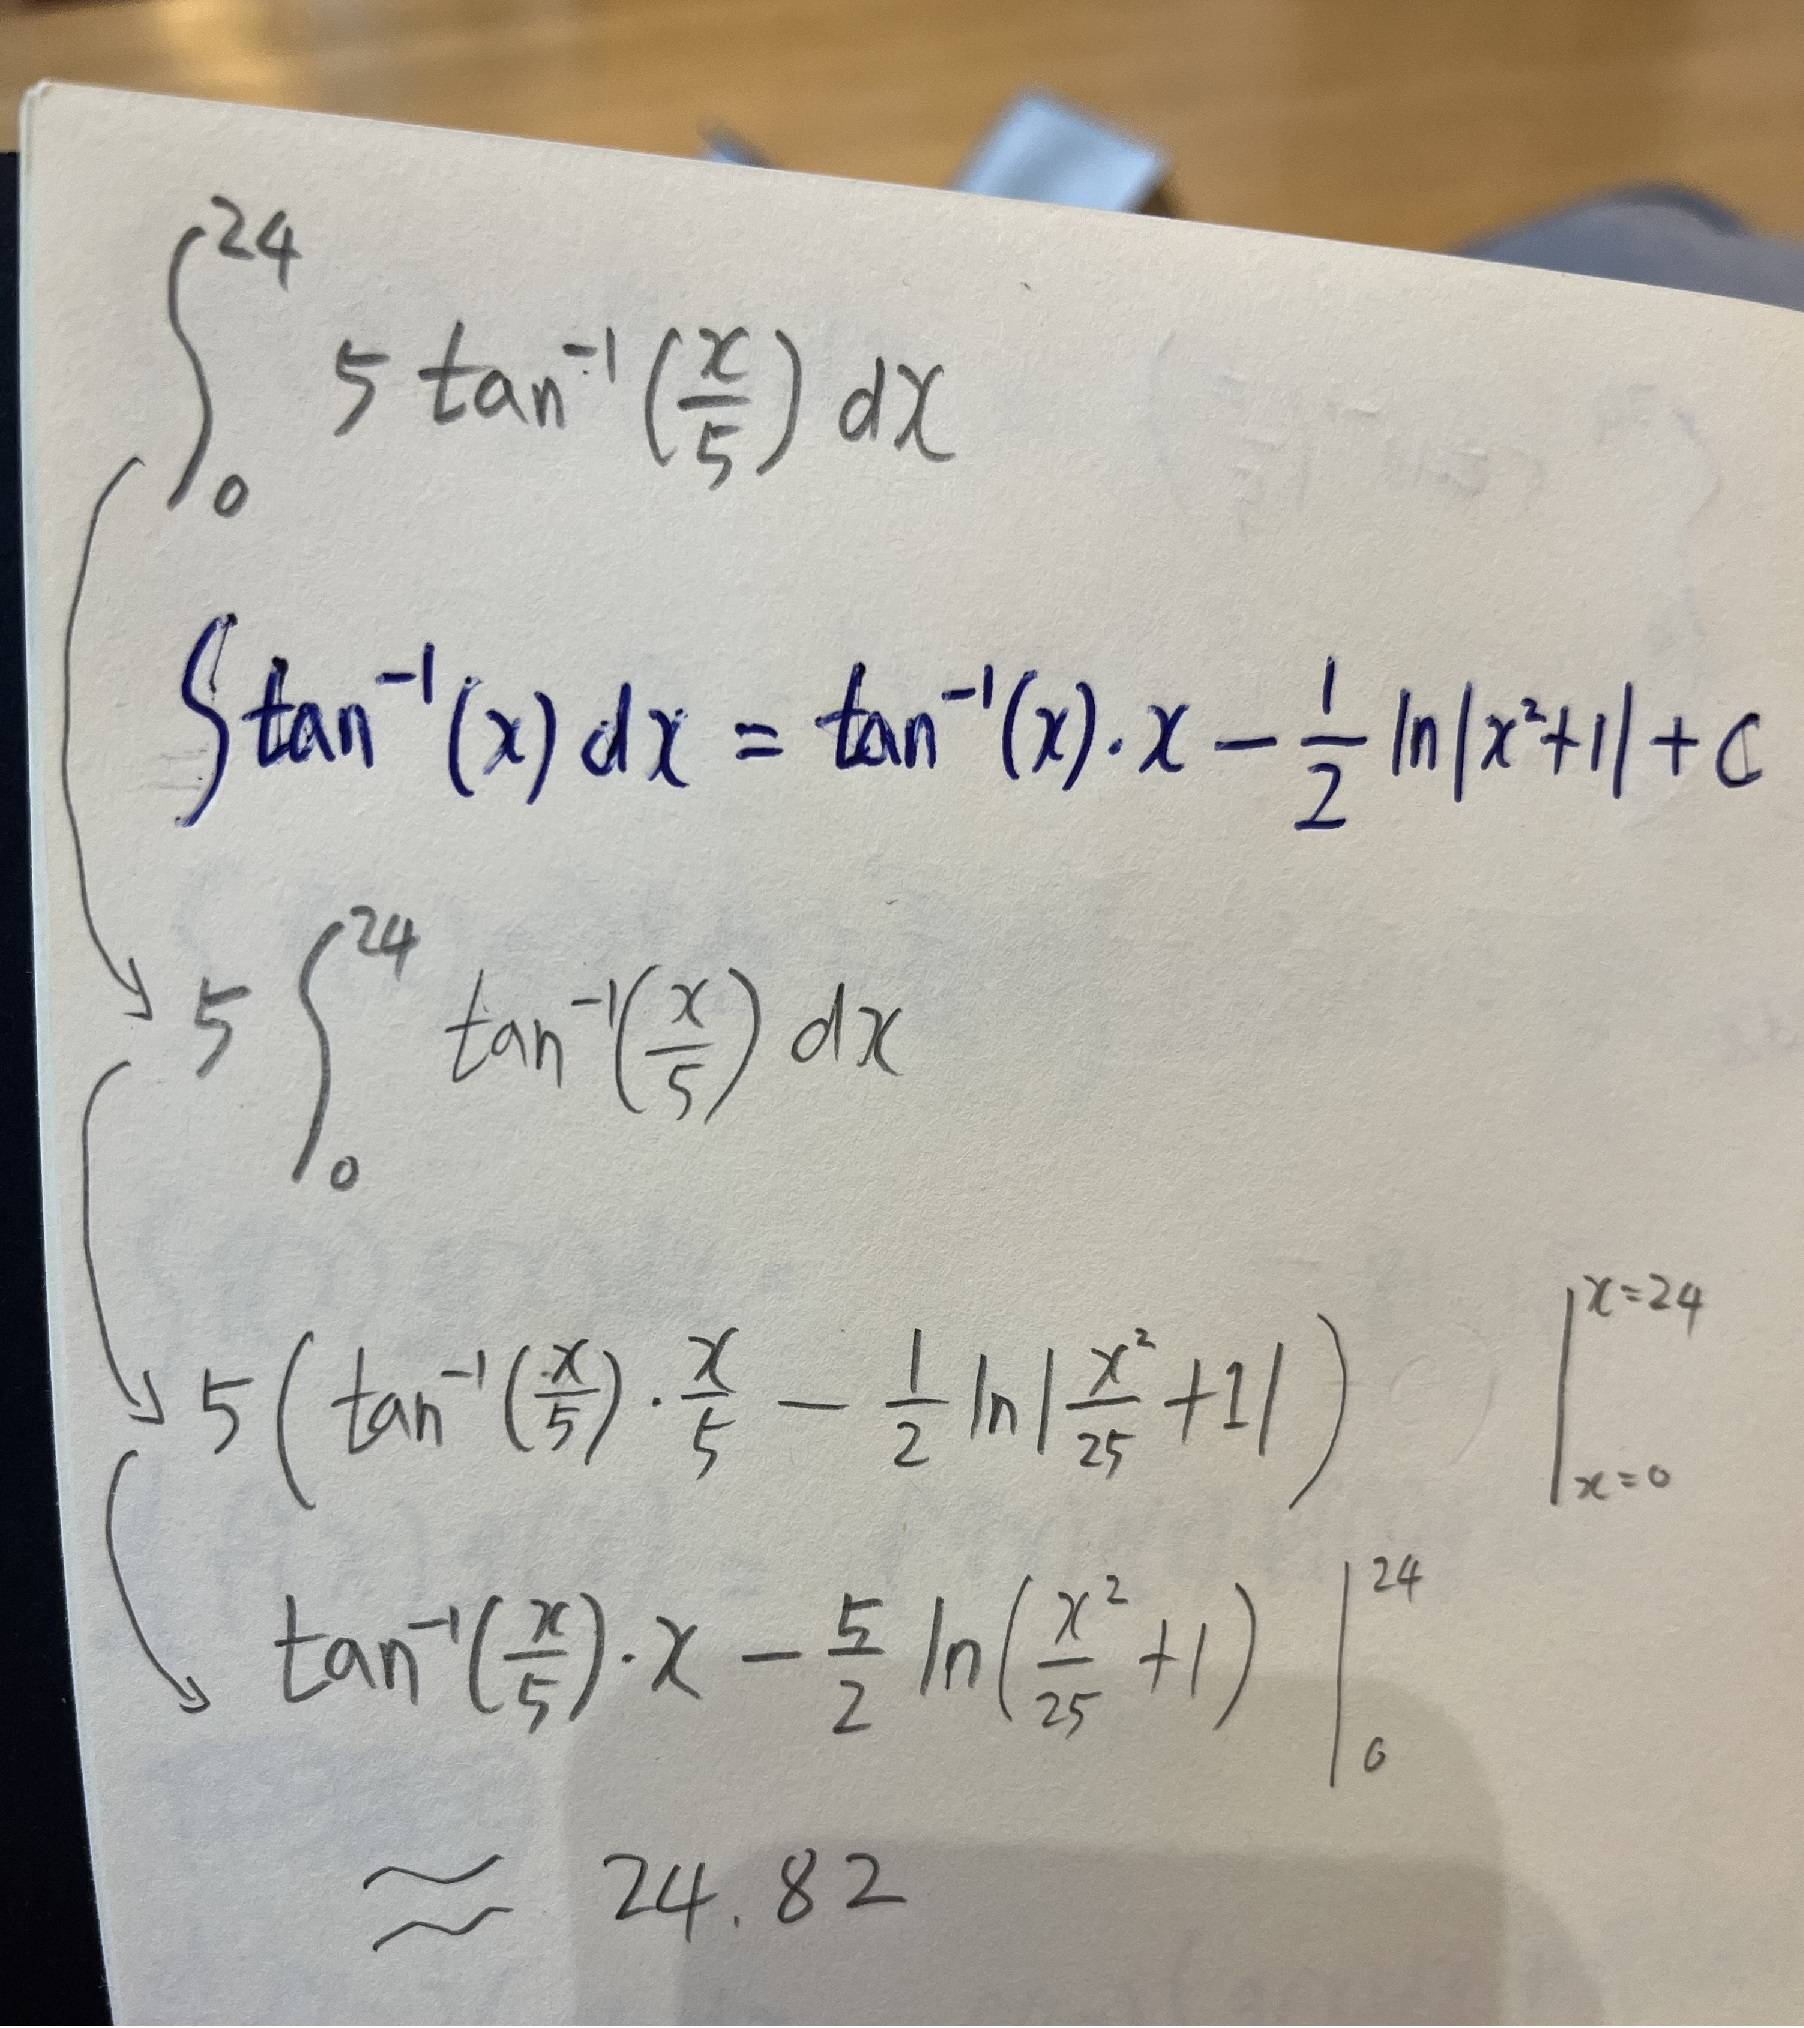 ∫₀²⁴ 5 tan⁻¹(x/5) dx
∫ tan⁻¹(x) dx = tan⁻¹(x)·x − 1/2 ln|x²+1| + C
5 ∫₀²⁴ tan⁻¹(x/5) dx
5(tan⁻¹(x/5)·x/5 − 1/2 ln|x²/25 +1|) |ₓ₌₀ˣ⁼²⁴
tan⁻¹(x/5)·x − 5/2 ln(x²/25 +1) |₀²⁴
≈ 24.82